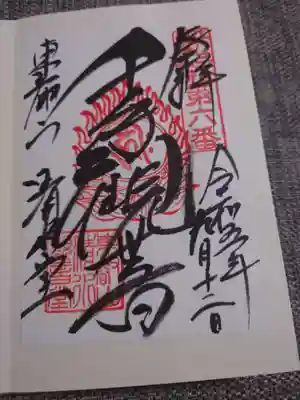 奉拝
第六番
令和五年
九月十二日
千手観世音
東叡山 清水堂